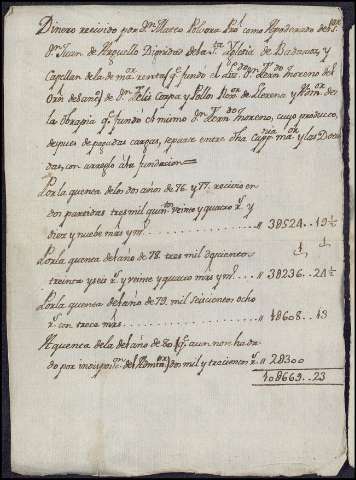 Dinero recivido por Dn Marco Polvora Pro como Apoderado del Sr
Dn Juan de Arguello Dignidad de la Sta Yglesia de Badajoz, y
Capellan de la de maor renta (qe fundó el Lizdo Dn Ferndo Moreno del
Orn de Sango) de Dn Felix Carpa y Pollos Vezo de Llerena y Admor de
la Obrapia qe fundó el mismo Dn Ferndo Moreno, cuyo producto
despues de pagadas cargas, reparte entre dha Capp maor y las Donce
das, con arreglo á la fundacion
Por la quenta de los dos años de 76 y 77. recivio en
dos partidas tres mil quintos veinte y quatro rs y
diez y nuebe mars y mo ........ " 38524..19½
Por la quenta del año de 78. tres mil doscientos
treinta y seis rs y veinte y quatro mars y mo .... " 38236..24½
Por la quenta del año de 79. mil seiscientos ocho
rs con trece mars ........ " 18608..13
A quenta de la del año de 80 (qe aun no ha da
do por indispon del Admor) dos mil y trecientos rs " 28300
108669..23